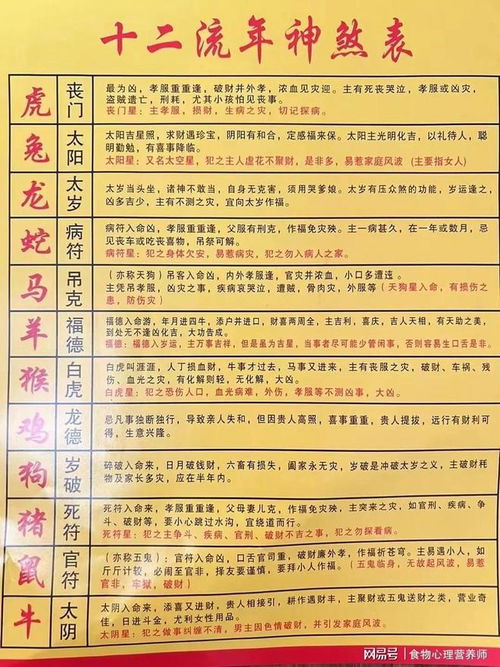 十二流年神煞表
虎
丧门
最为凶，孝服重重逢，破财并外孝，浓血见灾迎。主有死丧哭泣，孝服或凶灾，
盗贼遗亡，刑耗，尤其小孩怕见丧事。
丧门星：主孝服，损财，生病之灾、切记探病。
兔
太阳
太阳吉星照，求财遇珍宝，阴阳有和合，定感福来保。太阳主光明化吉，以礼待人，聪
明勤勉，有喜事降临。
太阳星：又名太空星，犯之主人虚花不聚财，是非多，易惹家庭风波（主要指女人）
龙
太岁
太岁当头坐，诸神不敢当，自身无克害，须用哭爹娘。太岁有压众煞的功能，岁运逢之，
凶多吉少，主有不测之灾，宜向太岁作福。
蛇
病符
病符入命凶，孝服重重逢，父服有刑克，作福免灾殃。主一病甚久，在一年或数月，忌
见丧车或吃丧喜物，吊祭可解。
病符星：犯之身体欠安，易惹病灾，犯之勿入病人之家。
马
吊克
（亦称天狗）吊客入命凶，内外孝服逢，官灾并浓血，小口多遭迍。
主凭吊孝服，凶灾之事，疾病哀哭泣，遭贼，骨肉灾，外服等（天狗星入命，有损伤之
患，防伤灾）
羊
福德
福德入命游，年月进四牛，添户并进口，财喜两周全，主吉利，喜庆，吉人天相，有天助之美，
到处无不逢凶化吉，大功告成。
福德：福德入岁运，主万事吉祥，但是虽为吉星，当事者尽可能少管闲事，否则容易生口舌是非。
猴
白虎
白虎叫涯涯，人丁损血财，牛事才过去，马事又进来，主有丧服之灾，破财、车祸、残
伤、血光之灾，有化解则轻，无化解，大凶。
白虎星：犯之恐伤人口，血光病难，外伤，孝服等不测凶事，大凶。
鸡
龙德
忌凡事独断独行，导致亲人失和，但因贵人高照，喜事重重，贵人提拔，远行有财利可
得，生意兴隆。
狗
岁破
碎破入命来，日月破钱财，六畜有损失，阖家永无灾，岁破是冲破太岁之义，主破财耗
物及家长多灾，应在半年内。
猪
死符
死符入命来，孝服重重逢，父母妻儿克，作福免灾殃。主突来之灾，如官刑、疾病、争
斗、破财等，要小心跳过水沟，宜绕道而行。
死符星：犯之主争斗、疾病、官刑、破财不吉之事，犯之勿探看病。
鼠
官符
（亦称五鬼）：官符入命凶，口舌官司重，破财廉外孝，作福祈苍穹。主易遇小人，如
斤斤计较，必闹至官非，择友要谨慎，要拜小人作福。（五鬼临身，无故起风波，易惹
官非，牢狱，破财）
牛
太阴
太阴入命来，添喜又进财，贵人相接引，耕作遇财丰，主聚财或五鬼送财之类，营业奇
佳，日进斗金，尤利女性用品。
太阴星：犯之做事纠缠不清，男主因色情破财，并引发家庭风波。
网易号|食物心理营养师